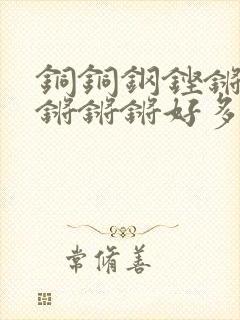 銅銅鋼鏗鏘
鏘鏘鏘好多
常脩善